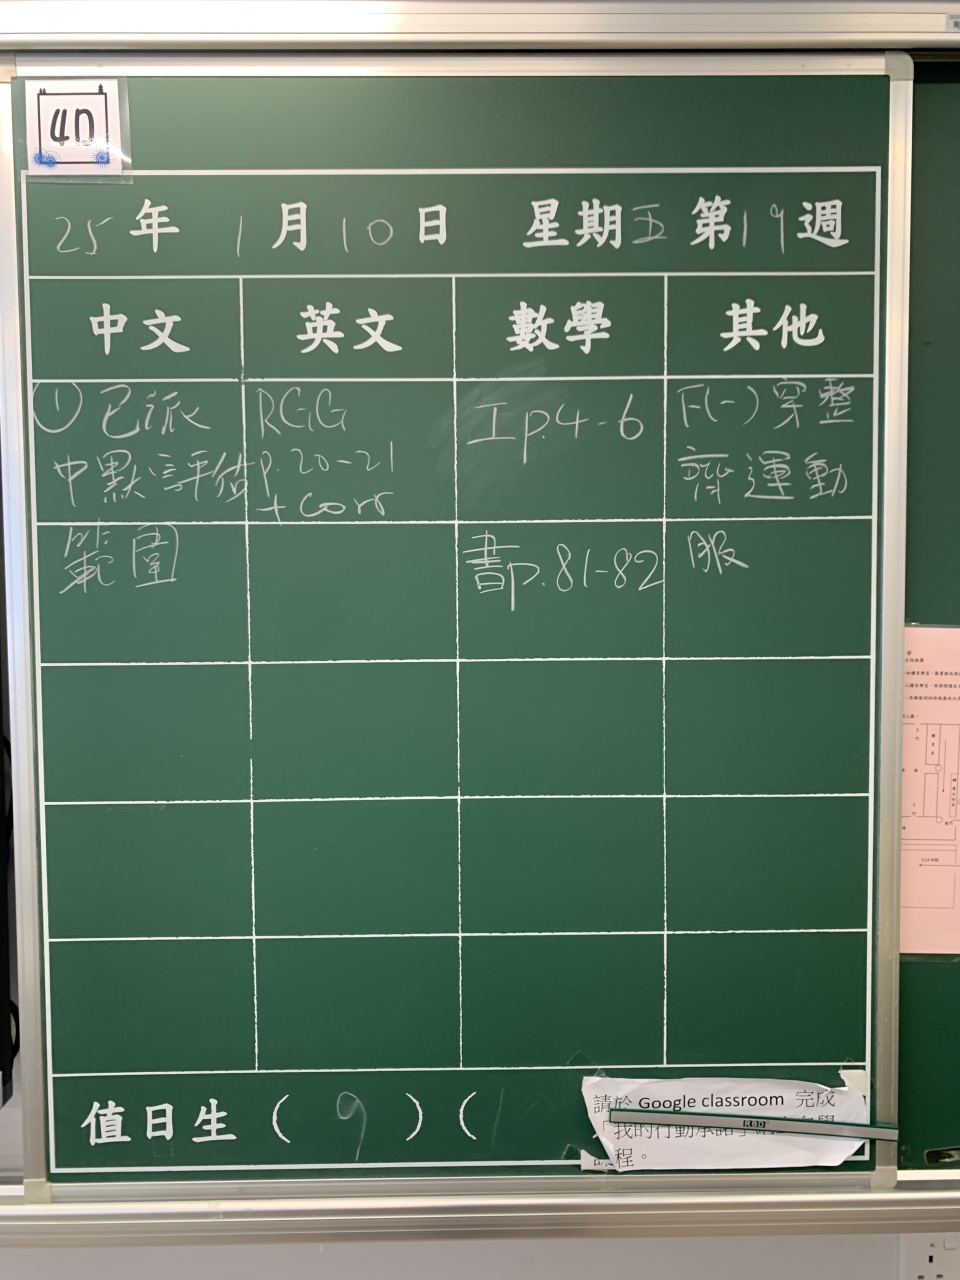 4D
25年 1月10日 星期五 第19週
中文 英文 數學 其他
① 已派
中默評估
範圍
RGG
p.20-21
+ corr
工p.4-6
書p.81-82
下(一)穿整
齊運動
服
值日生 ( 9 ) (
請於 Google classroom 完成
「我的行動承諾」
課程。
RBD